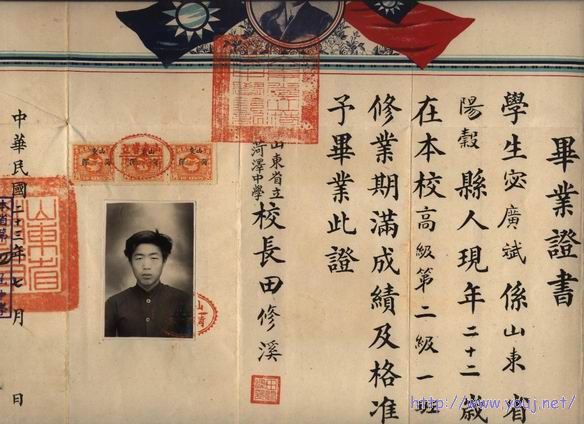 畢業證書
學生宓廣斌係山東省
陽縠縣人現年二十二歲
在本校高級第二級一班
修業期滿成績及格准
予畢業此證
山東省立
菏澤中學
校長田修溪
中華民國二十三年七月 日
山東省
http://www.youj.net/